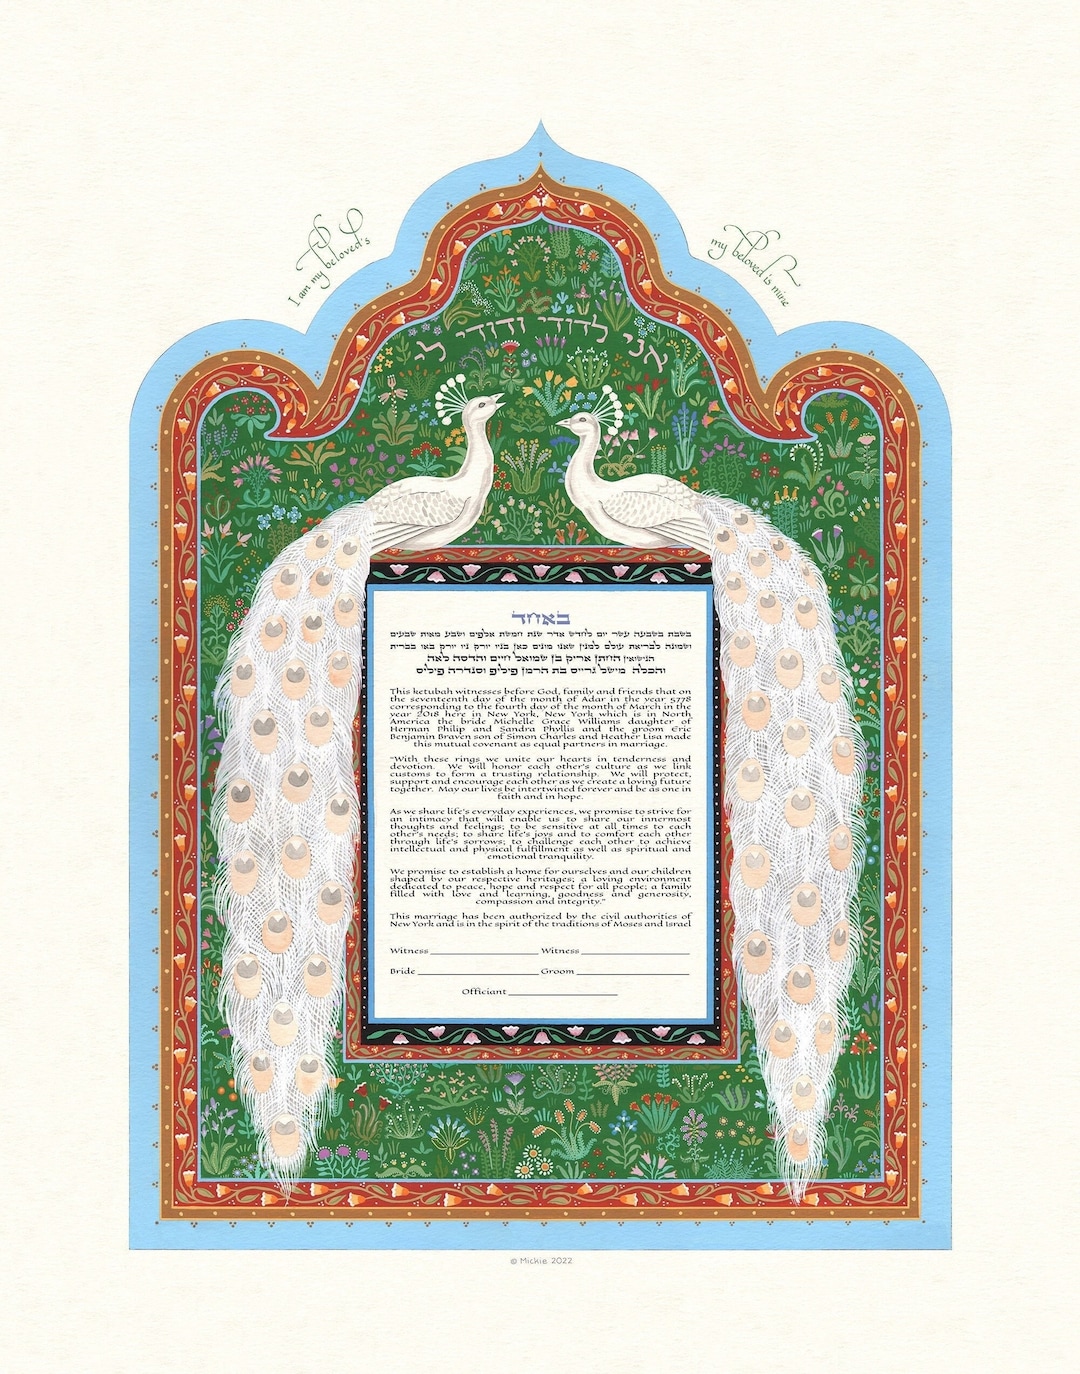 I am my beloved's
my beloved is mine
אני לדודי ודודי לי
באחד
בשבת בשבעה עשר יום לחדש אדר שנת חמשת אלפים ושבע מאות שבעים
ושמונה לבריאת עולם למנין שאנו מונים כאן בניו יורק ניו יורק באו בברית
הנישואין החתן אריק בן שמואל חיים והדסה לאה
והכלה מישל גרייס בת הרמן פיליפ וסנדרה פיליס
This ketubah witnesses before God, family and friends that on
the seventeenth day of the month of Adar in the year 5778
corresponding to the fourth day of the month of March in the
year 2018 here in New York, New York which is in North
America the bride Michelle Grace Williams daughter of
Herman Philip and Sandra Phyllis and the groom Eric
Benjamin Braven son of Simon Charles and Heather Lisa made
this mutual covenant as equal partners in marriage.
"With these rings we unite our hearts in tenderness and
devotion. We will honor each other's culture as we link
customs to form a trusting relationship. We will protect,
support and encourage each other as we create a loving future
together. May our lives be intertwined forever and be as one in
faith and in hope.
As we share life's everyday experiences, we promise to strive for
an intimacy that will enable us to share our innermost
thoughts and feelings; to be sensitive at all times to each
other's needs; to share life's joys and to comfort each other
through life's sorrows; to challenge each other to achieve
intellectual and physical fulfillment as well as spiritual and
emotional tranquility.
We promise to establish a home for ourselves and our children
shaped by our respective heritages; a loving environment
dedicated to peace, hope and respect for all people; a family
filled with love and learning, goodness and generosity,
compassion and integrity."
This marriage has been authorized by the civil authorities of
New York and is in the spirit of the traditions of Moses and Israel
Witness ____________ Witness ____________
Bride ____________ Groom ____________
Officiant ____________
© Mickie 2022